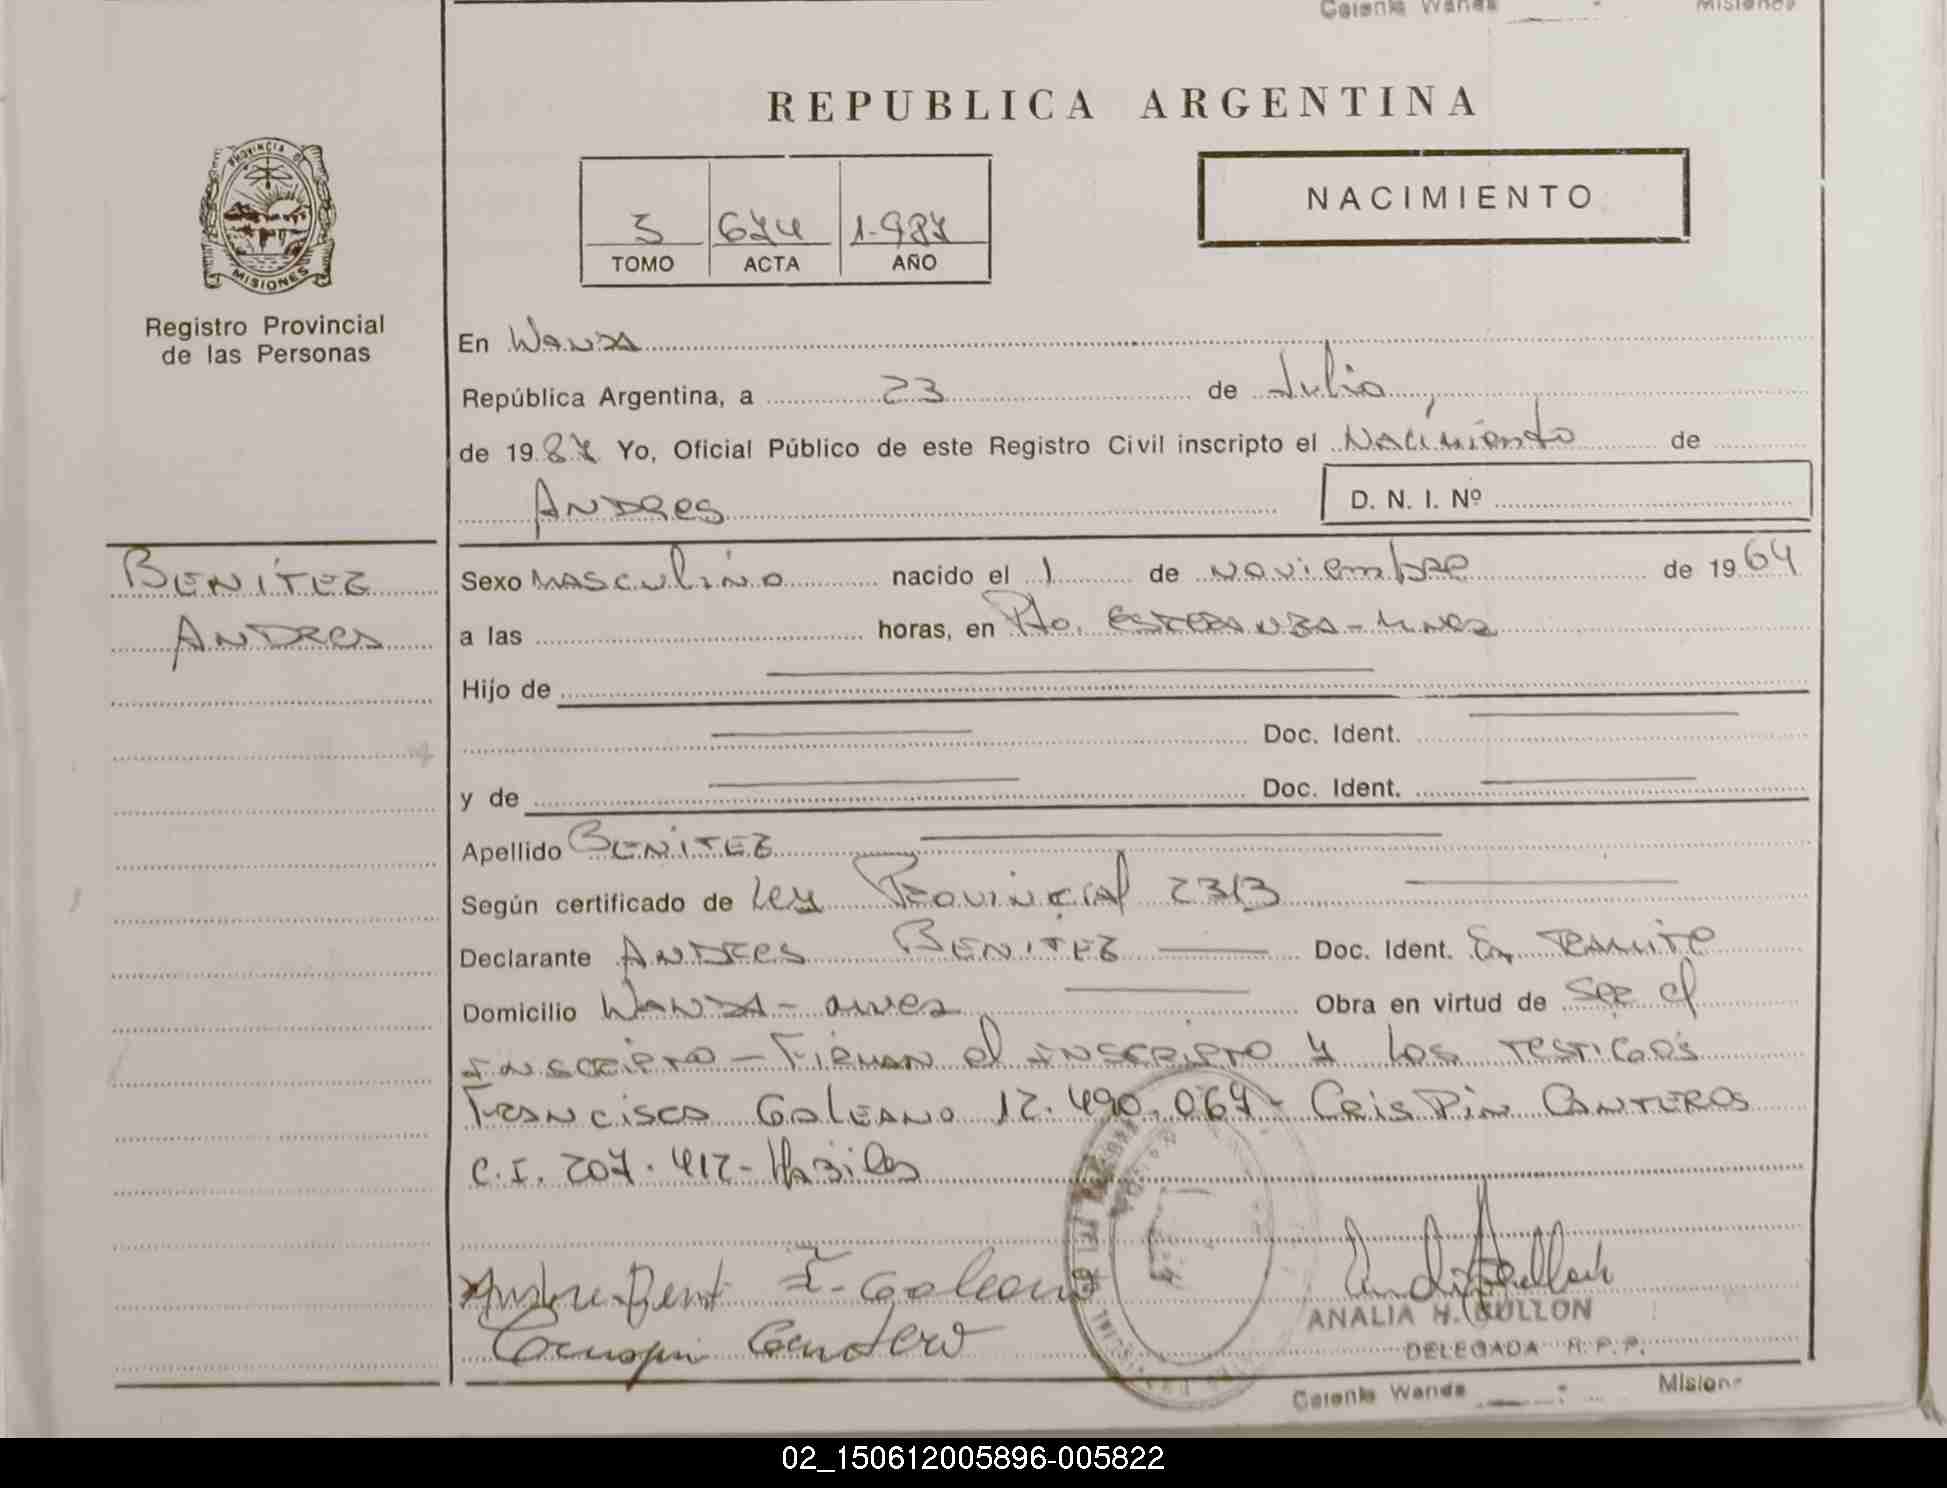 Gerente Wanda Misiones
REPUBLICA ARGENTINA
PROVINCIA D
MISIONES
Registro Provincial
de las Personas
3 674 1.987
TOMO ACTA AÑO
NACIMIENTO
En Wanda
República Argentina, a 23 de Julio
de 1987 Yo, Oficial Público de este Registro Civil inscripto el Nacimiento de
ANDRES
D. N. I. Nº
BENITEZ
ANDRES
Sexo MASCULINO nacido el 1 de noviembre de 1964
a las horas, en Pto. ESPERANZA - Mnes
Hijo de
Doc. Ident.
y de Doc. Ident.
Apellido BENITEZ
Según certificado de Ley Provincial 2313
Declarante ANDRES BENITEZ Doc. Ident. En TRAMITE
Domicilio WANDA - Mnes Obra en virtud de ser el
INSCRIPTO - Firman el INSCRIPTO y los testigos
Galeano 12.490.064 - Crispin CANTEROS
C.I. 207.412 - Habiles
F. Galeano
Crispin Cantero
ANALIA H. GULLON
DELEGADA R. P. P.
Gerente Wanda Misiones
02_150612005896-005822